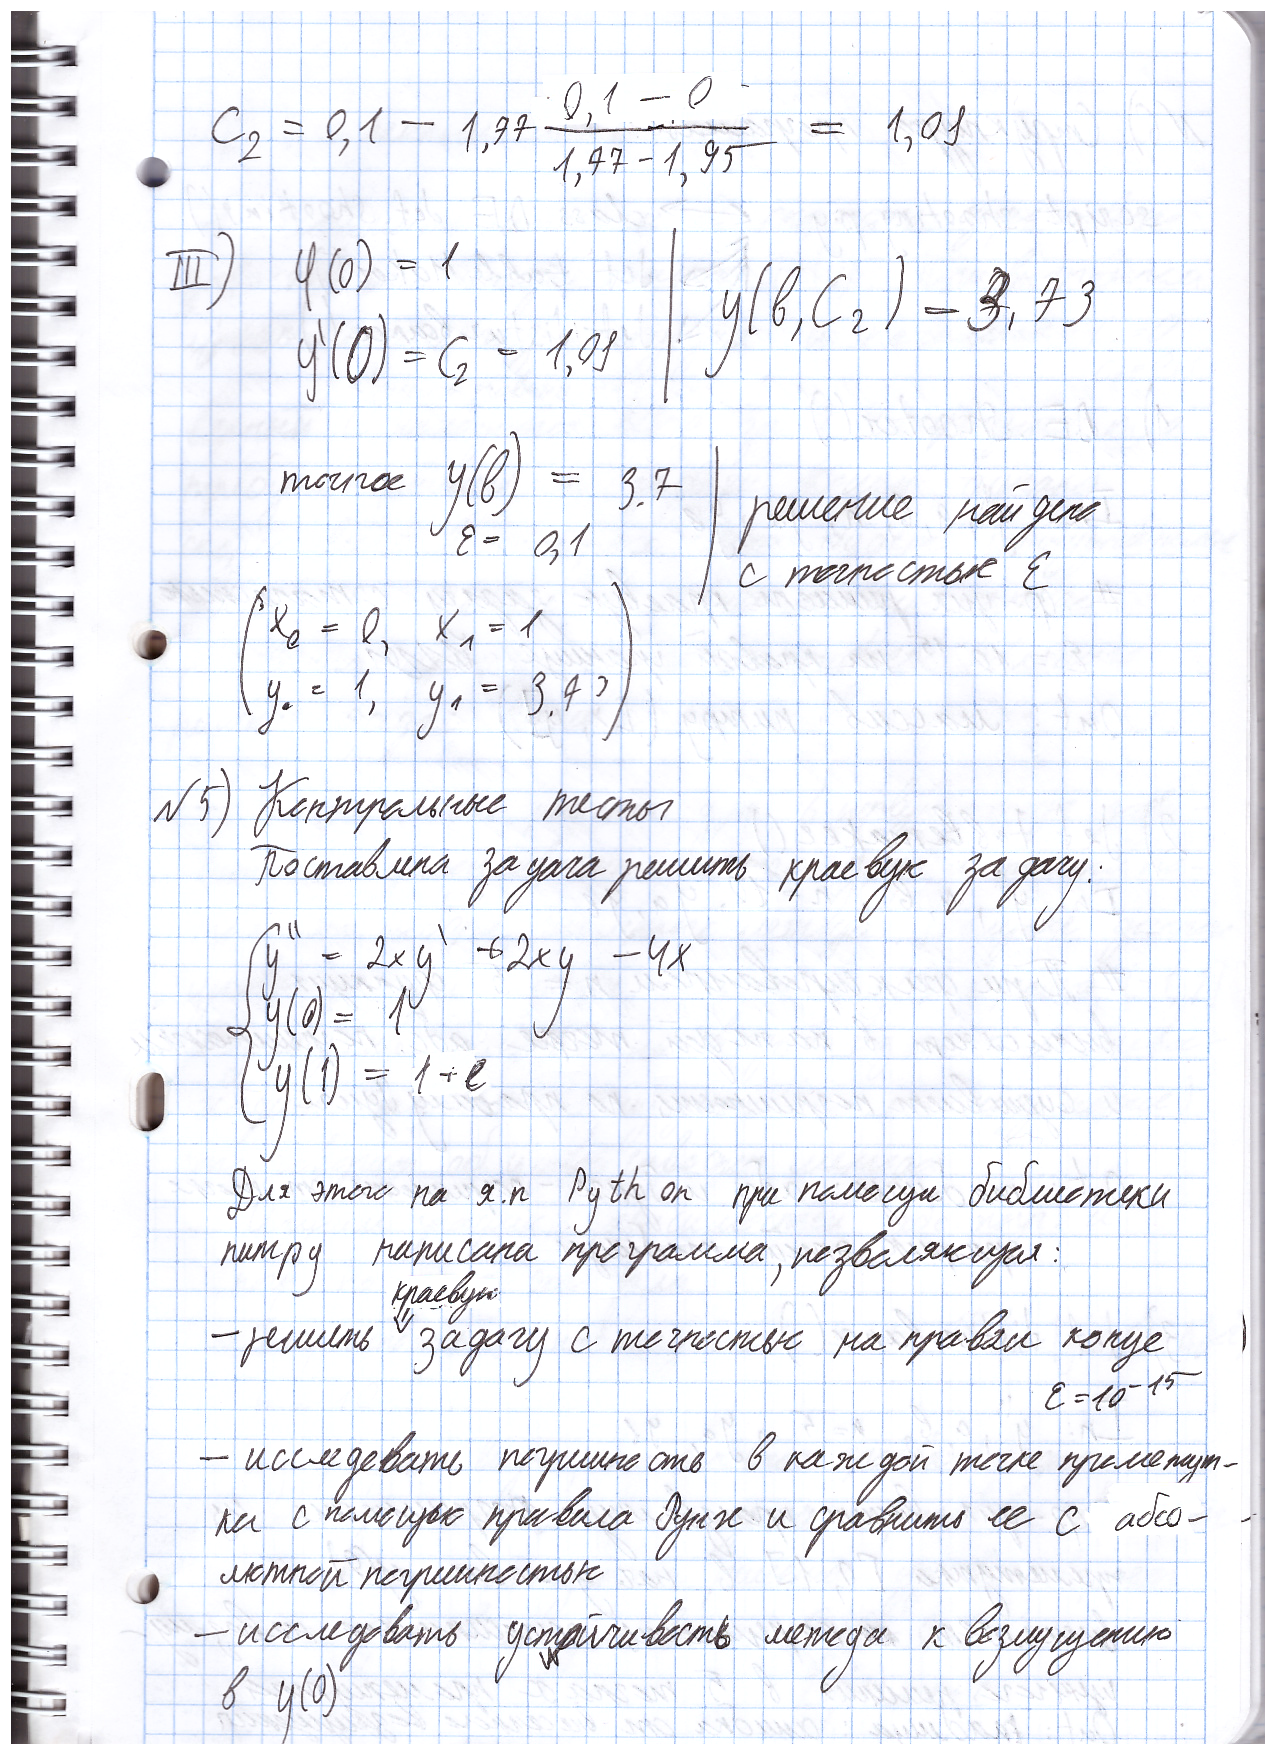 C₂ = 0,1 − 1,77 (0,1 − 0)/(1,77 − 1,95) = 1,09
III) y(0) = 1 | y(b, C₂) = 3,73
y'(0) = C₂ = 1,09
точное y(b) = 3.7 | решение найдено
ε = 0,1 | с точностью ε
(x₀ = 0, x₁ = 1
y₀ = 1, y₁ = 3.73)
№5) Контрольные тесты
Поставлена задача решить краевую задачу:
{ y'' = 2xy' + 2xy − 4x
y(0) = 1
y(1) = 1 + e
Для этого на я.п Python при помощи библиотеки
numpy написана программа, позволяющая:
краевую
– решить задачу с точностью на правом конце
ε = 10⁻¹⁵
– исследовать погрешность в каждой точке промежут-
ка с помощью правила Рунге и сравнить ее с абсо-
лютной погрешностью
– исследовать устойчивость метода к возмущению
в y(0)